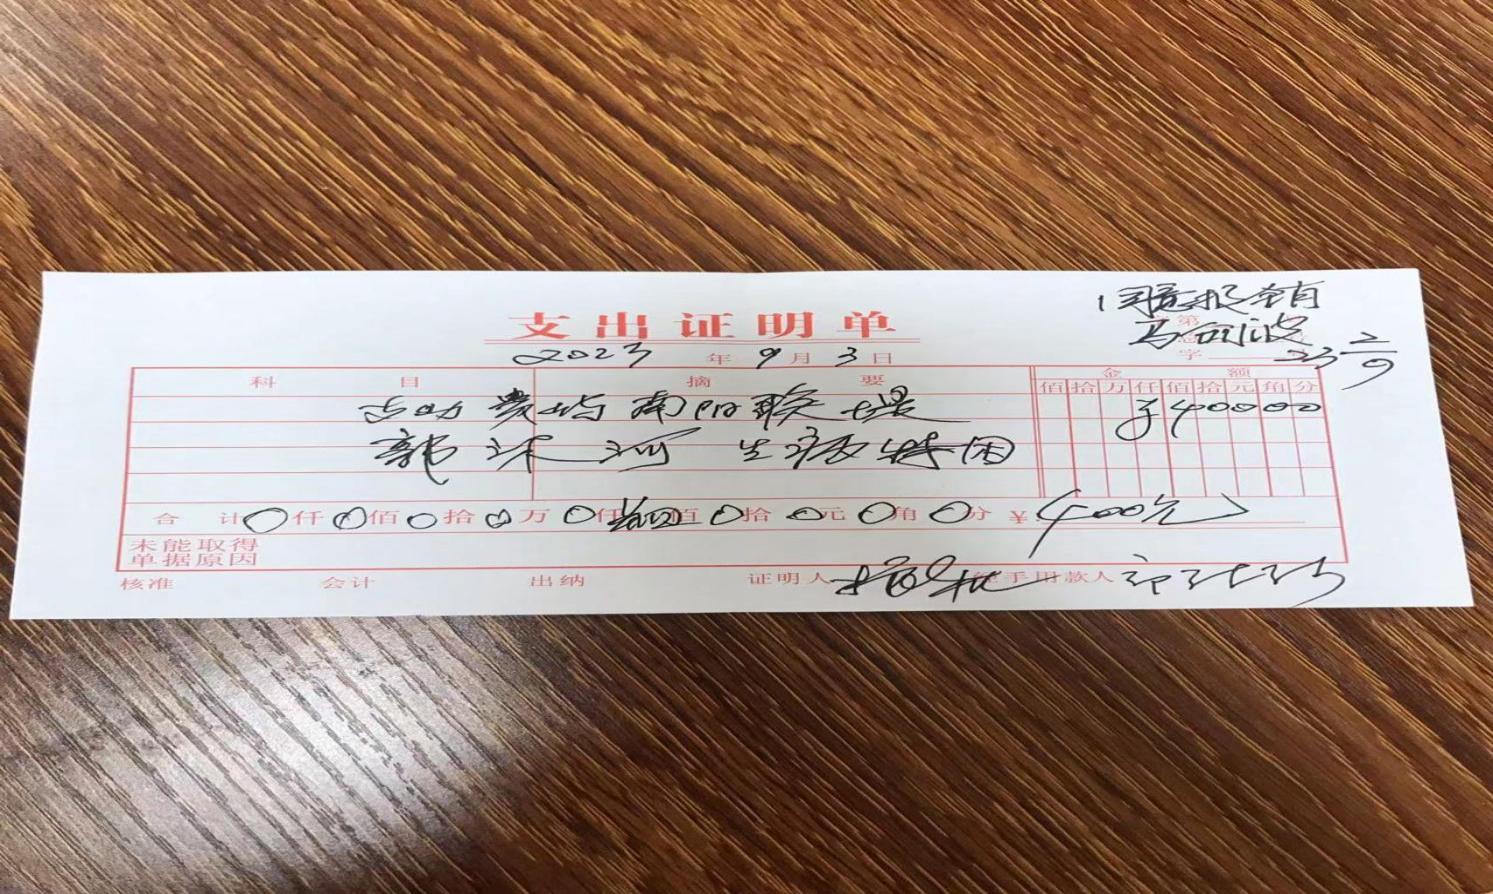 同意报销
第
支出证明单
字
2023年9月3日
科目 摘要 金额
佰拾万仟佰拾元角分
补助贵屿南阳联堤 ¥40000
郭沐河生活特困
合计0仟0佰0拾0万0仟肆佰0拾0元0角0分 ¥(400元)
未能取得
单据原因
核准 会计 出纳 证明人 经手用款人